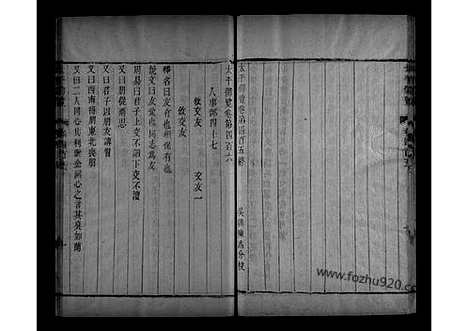 太平御覽卷第四百五終
吳
分校
太平御覽卷第四百六
人事部四十七
敘交友 交友一
敘交友
釋名曰友有也相保有也
說文曰友愛也同志為友
周易曰君子上交不諂下交不瀆
又曰朋從爾思
又曰君子以朋友講習
又曰西南得朋東北喪朋
又曰二人同心其利斷金同心之言其臭如蘭
www.fozhu920.com